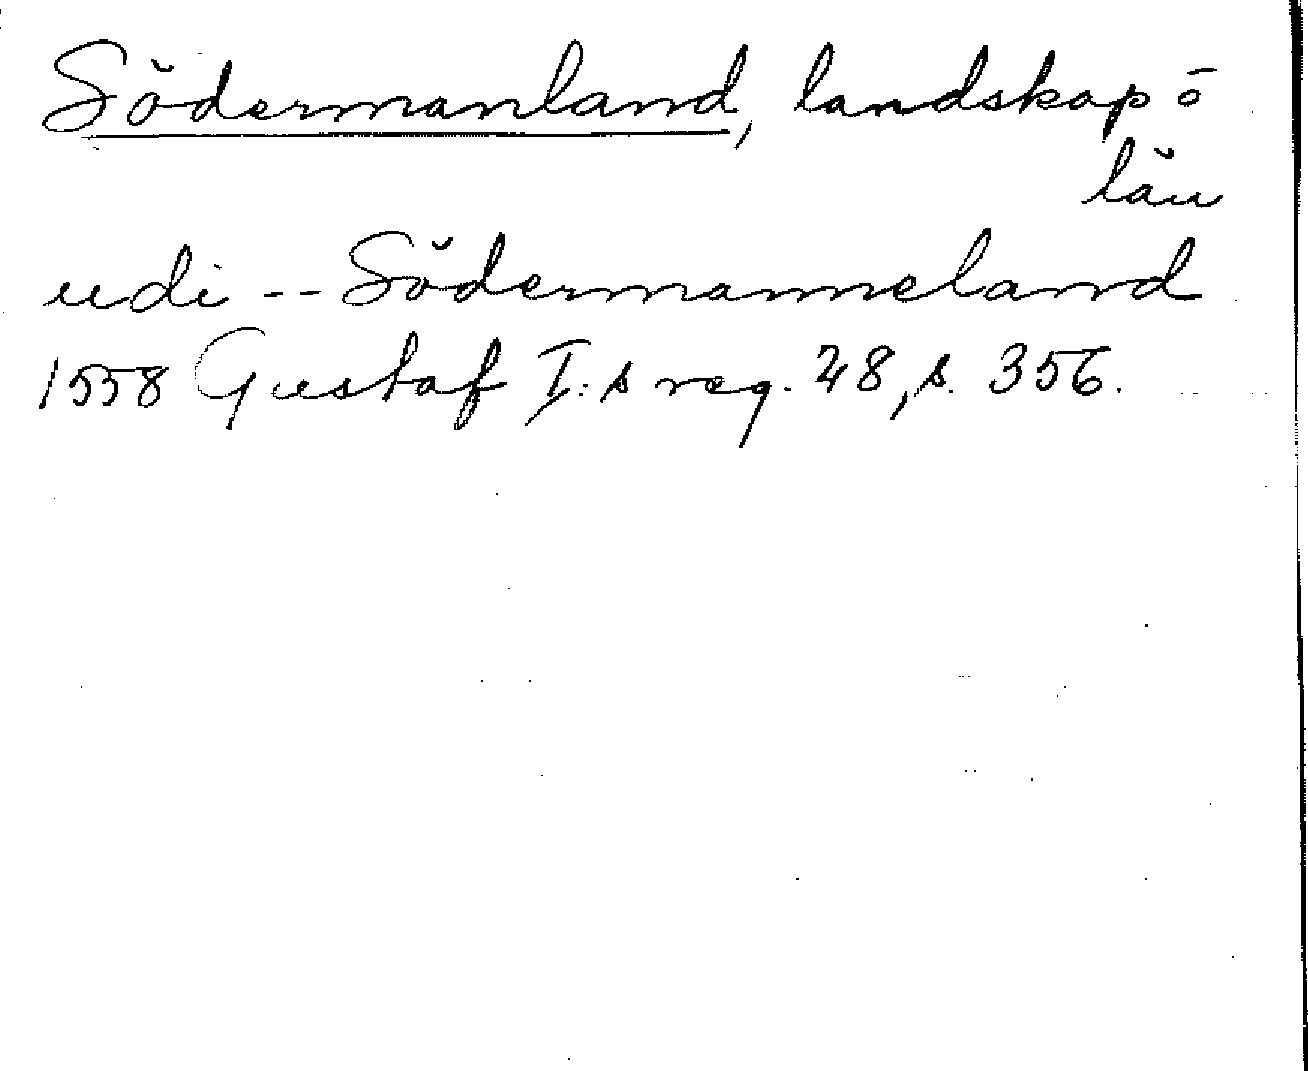 Södermanland, landskap o
län
udi -- Södermanneland
1558 Gustaf I:s reg. 28, s. 356.